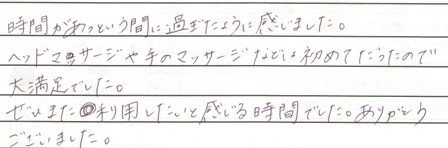 時間があっという間に過ぎたように感じました。
ヘッドマッサージや手のマッサージなどは初めてだったので
大満足でした。
ぜひまた利用したいと感じる時間でした。ありがとう
ございました。